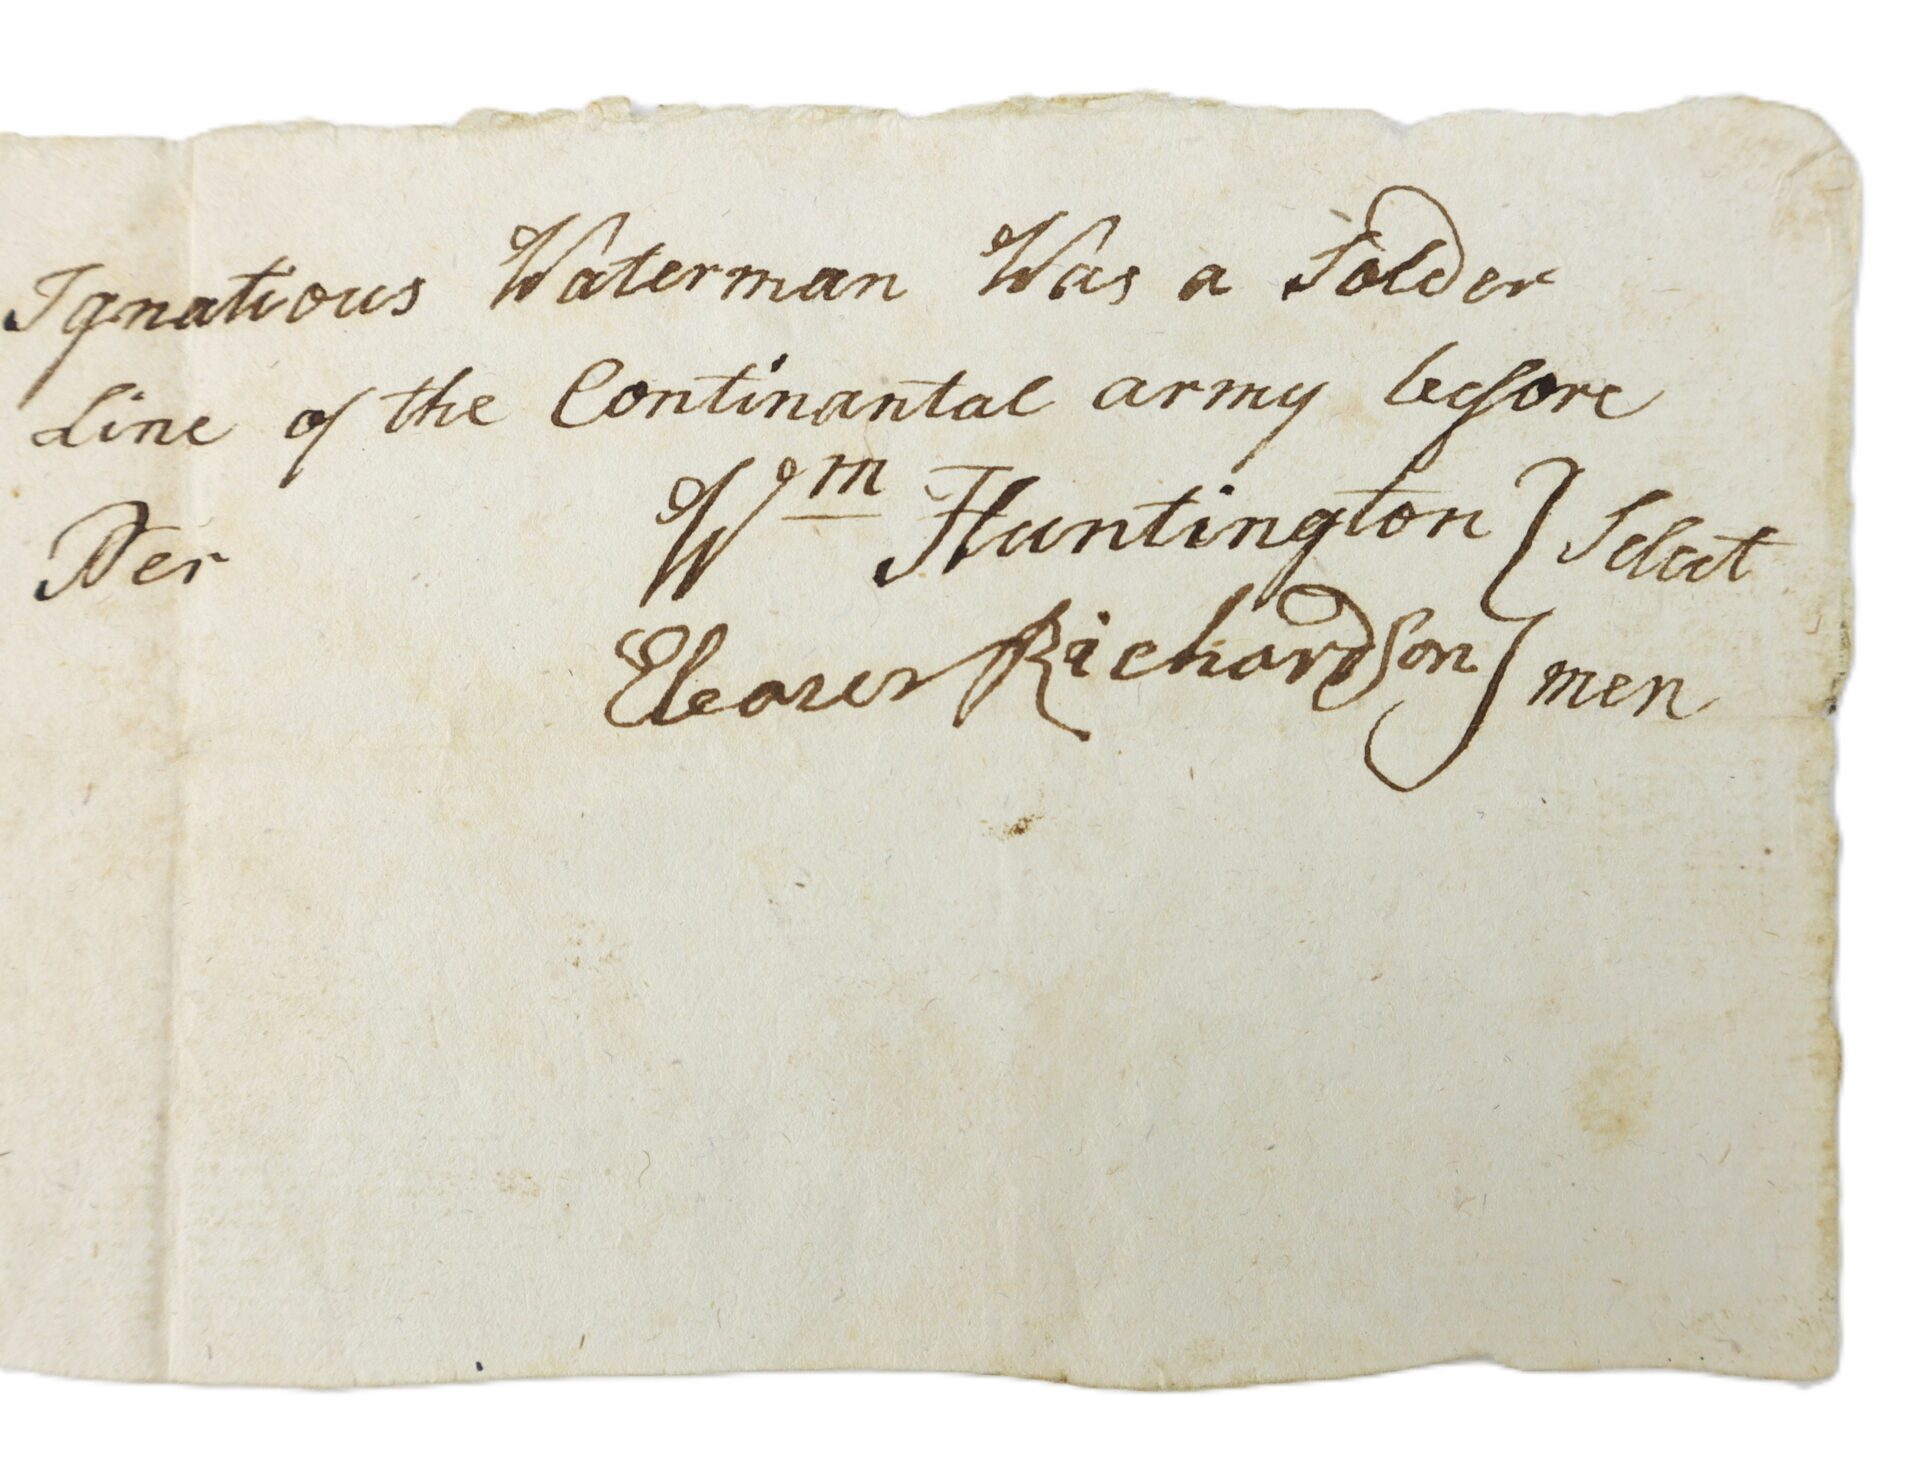 Ignatious Waterman Was a Solder
Line of the Continantal army before
Per
Wm Huntington } Select
Eleazer Richardson } men